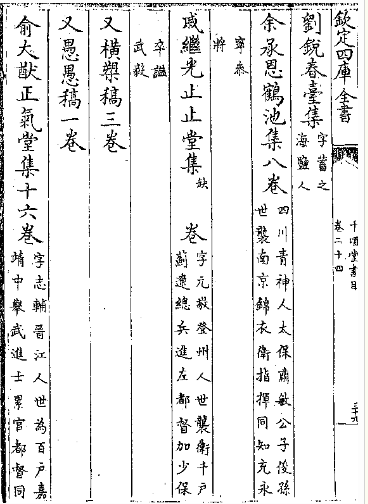 欽定四庫全書
劉銳春臺集字蓄之
海鹽人
余承恩鶴池集八卷四川青神人太保肅敏公子俊孫
世襲南京錦衣衛指揮同知充永
寧叅
將
戚繼光止止堂集缺卷字元敬登州人世襲衛千戶
薊遼總兵進左都督加少保
卒諡
武毅
又橫槊稿三卷
又愚愚稿一卷
俞大猷正氣堂集十六卷字志輔晉江人世為百戶嘉
靖中舉武進士累官都督同
千頃堂書目
卷二十四